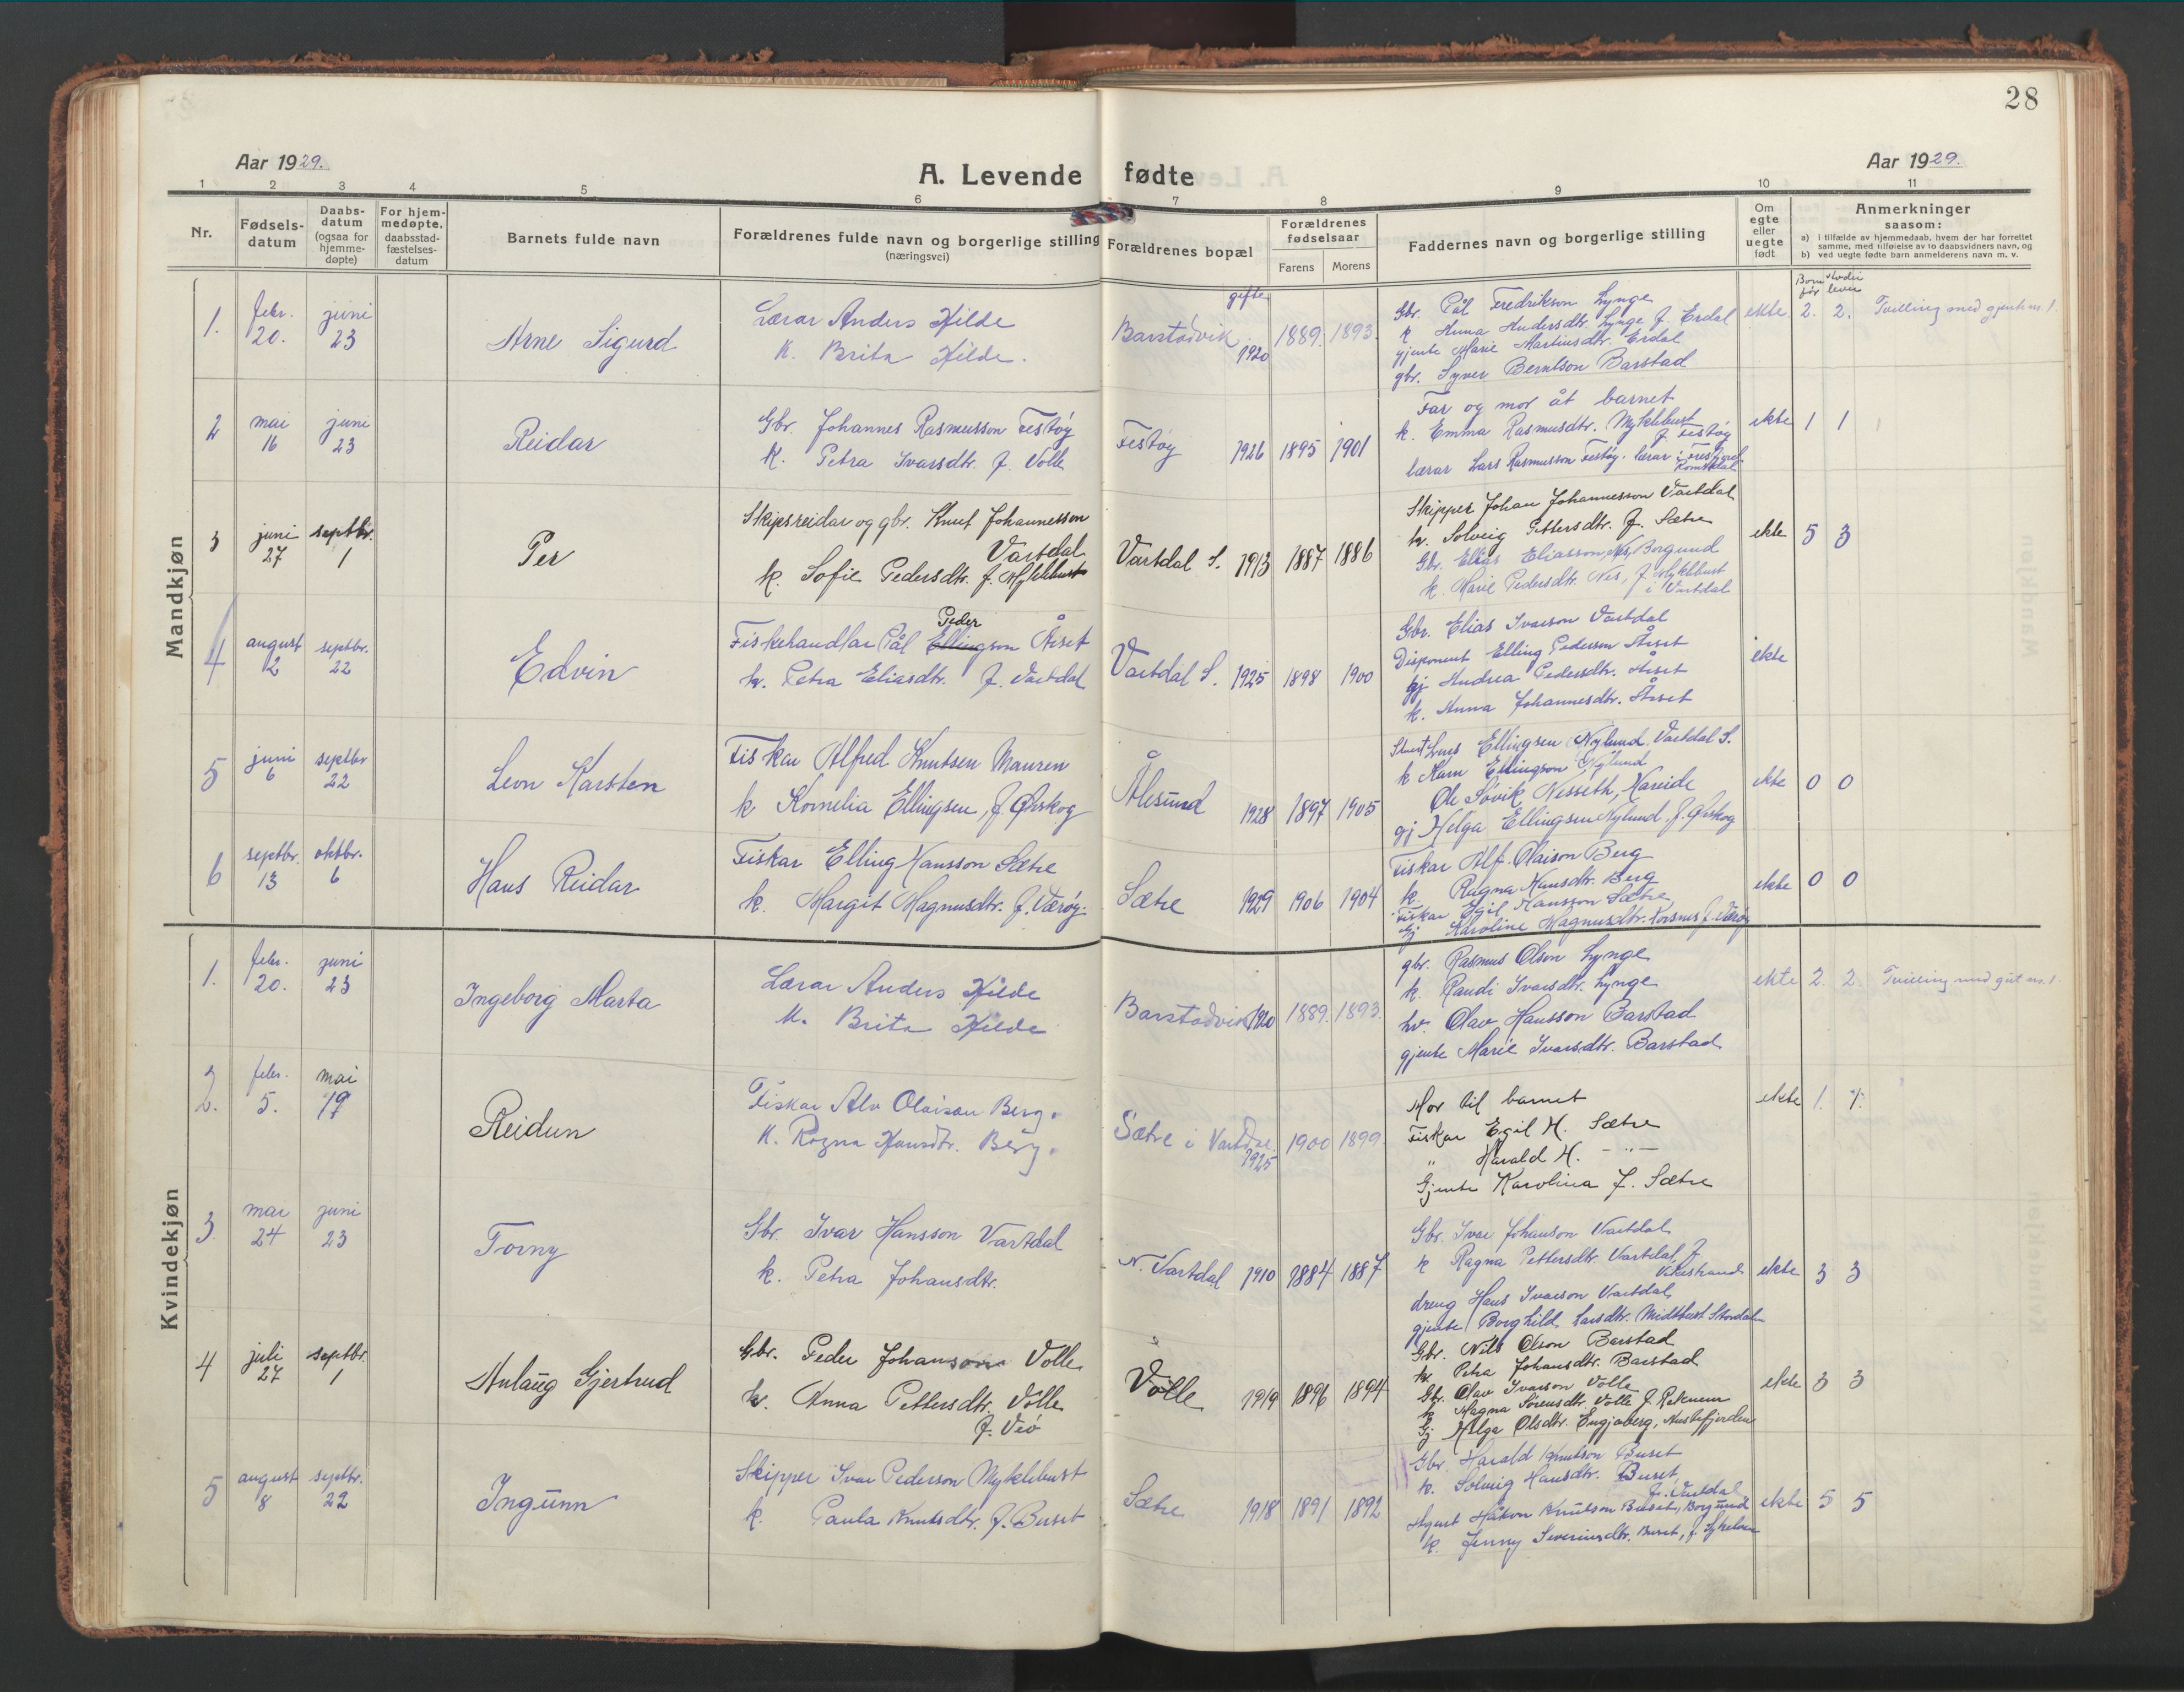 28
Aar 1929.
A. Levende fødte
Aar 1929.
1 2 3 4 5 6 7 8 9 10 11
Nr.
Fødsels-
datum
Daabs-
datum
(ogsaa for
hjemme-
døpte)
For hjem-
medøpte,
daabsstad-
fæstelses-
datum
Barnets fulde navn
Forældrenes fulde navn og borgerlige stilling
(næringsvei)
Forældrenes bopæl
Forældrenes
fødselsaar
Farens Morens
Faddernes navn og borgerlige stilling
Om
egte
eller
uegte
født
Anmerkninger
saasom:
a) i tilfælde av hjemmedaab, hvem der har forrettet
samme, med tilføielse av to daabsvidners navn, og
b) ved uegte fødte barn anmelderens navn m. v.
gifte
Born
før lever
Mandkjøn
1. febr. 20. juni 23
Arne Sigurd
Lærar Anders Hilde
K. Brita Hilde.
Barstadvik 1920 1889. 1893.
Gbr. Pål Fredrikson Lynge
k Anna Andersdtr. Lynge f. Erdal
gjente Marie Martinsdtr. Erdal
gbr. Syver Berntson Barstad
ekte 2. 2. Tvilling med gjente nr. 1.
2 mai 16 juni 23
Reidar
Gbr. Johannes Rasmusson Festøy
K. Petra Ivarsdtr. f. Volle
Festøy 1926 1895 1901
Far og mor åt barnet
k. Emma Rasmusdtr. Myklebust
f. Festøy
lærar Lars Rasmusson Festøy. lærar i
ekte 1 1
3 juni 27 septbr. 1
Per
Skipsreidar og gbr. Knut Johannesson
Vartdal
k. Sofie Pedersdtr. f. Myklebust
Vartdal S. 1913 1887 1886
Skipper Johan Johannesson Vartdal
k. Solveig Pettersdtr. f. Sætre
Gbr. Elias Eliasson Nes, Borgund
k. Marie Pedersdtr. Nes, f. Myklebust
i Vartdal
ekte 5 3
4 august 2 septbr. 22
Edvin
Peder
Fiskehandlar Pål Ellingson Årset
k. Petra Eliasdtr. f. Vartdal
Vartdal S. 1925 1898 1900
Gbr. Elias Ivarson Vartdal
Disponent Elling Pederson Årset
gj Andrea Pedersdtr. Årset
k. Anna Johannesdtr. Årset
ekte
5 juni 6 septbr 22
Leon Karsten
Fiskar Alfred Knutsen Mauren
k Kornelia Ellingsen, f. Ørskog
Ålesund 1928 1897 1905
Lars Ellingsen Nylund, Vartdal S.
k Karn Ellingson Nylund
Ole Søvik, Nesseth, Hareide
gj Helga Ellingsen Nylund, f. Ørskog
ekte 0 0
6 septbr. 13 oktbr. 6
Hans Reidar
Fiskar Elling Hansson Sætre
k. Margit Magnusdtr. f. Værøy.
Sætre 1929 1906 1904
Fiskar Alf. Olaison Berg
k. Ragna Hansdtr. Berg
Fiskar Egil Hansson Sætre
Gj Karoline Magnusdtr. Korsnes f. Værøy
ekte 0 0
Kvindekjøn
1. febr. 20. juni 23
Ingeborg Marta
Lærar Anders Hilde
K. Brita Hilde
Barstadvik 1920 1889. 1893.
gbr. Rasmus Olson Lynge
k. Randi Ivarsdtr. Lynge
hv. Olav Hansson Barstad
gjente Marie Ivarsdtr. Barstad
ekte 2. 2. Tvilling med gut nr. 1.
2. febr. 5. mai 19
Reidun
Fiskar Alv Olaison Berg.
K. Ragna Hansdtr. Berg.
Sætre i 1925 1900 1899
Mor til barnet
Fiskar Egil H. Sætre
" Harald H. -"-
Gjente Karolina J. Sætre
ekte 1. 1.
3. mai 24 juni 23
Torny
Gbr. Ivar Hansson Vartdal
k. Petra Johansdtr.
N. Vartdal 1910 1884 1887
Gbr. Ivar Johanson Vartdal
k Ragna Pettersdtr. Vartdal, f.
Vikestrand
dreng Hans Ivarson Vartdal
gjente Borghild Larsdtr. Midtbust Stordalen
ekte 3 3
4 juli 27 septbr. 1
Aulaug Gjertrud
Gbr. Peder Johanson Volle
k. Anna Pettersdtr. Volle
f. Veö
Volle 1919 1896 1894
Gbr. Nils Olson Barstad
k. Petra Johansdtr. Barstad
Gbr. Olav Ivarson Volle
k Magna Sørensdtr. Volle f. Røknem
Gj Helga Olsdtr. Engjaberg, Austefjorden
ekte 3 3
5 august 8 septbr. 22
Ingunn
Skipper Ivar Pederson Myklebust
k. Paula Knutsdtr. f. Buset
Sætre 1918 1891 1892
Gbr. Harald Knutson Buset
k. Solveig Hansdtr. Buset,
f. Vartdal
Agent Håkon Knutson Buset, Borgund
k. Jenny Severinsdtr. Buset, f.
ekte 5 5